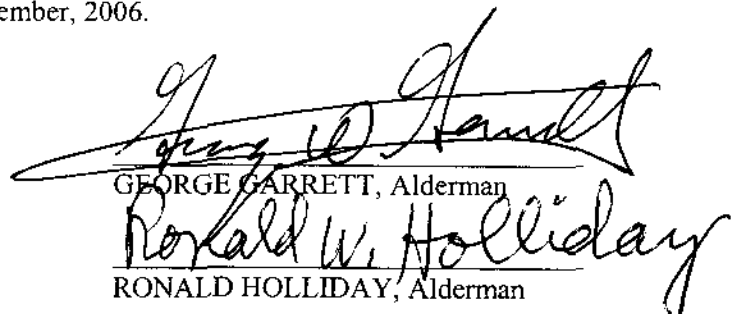 ember, 2006.
George D. Garrett
GEORGE GARRETT, Alderman
Ronald W. Holliday
RONALD HOLLIDAY, Alderman